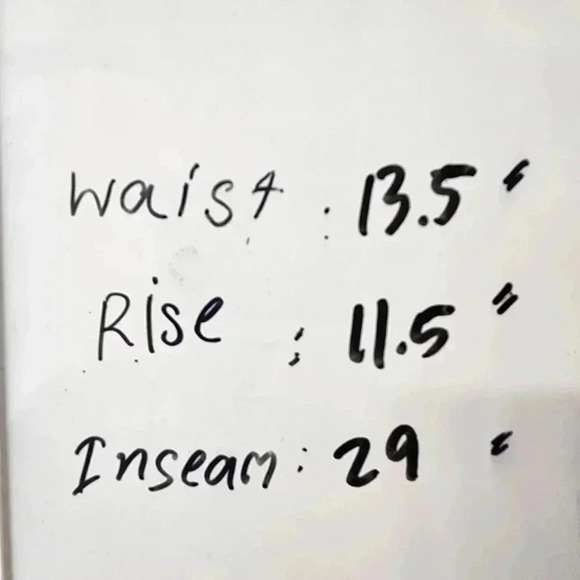 Waist : 13.5 "
Rise : 11.5 "
Inseam : 29 "